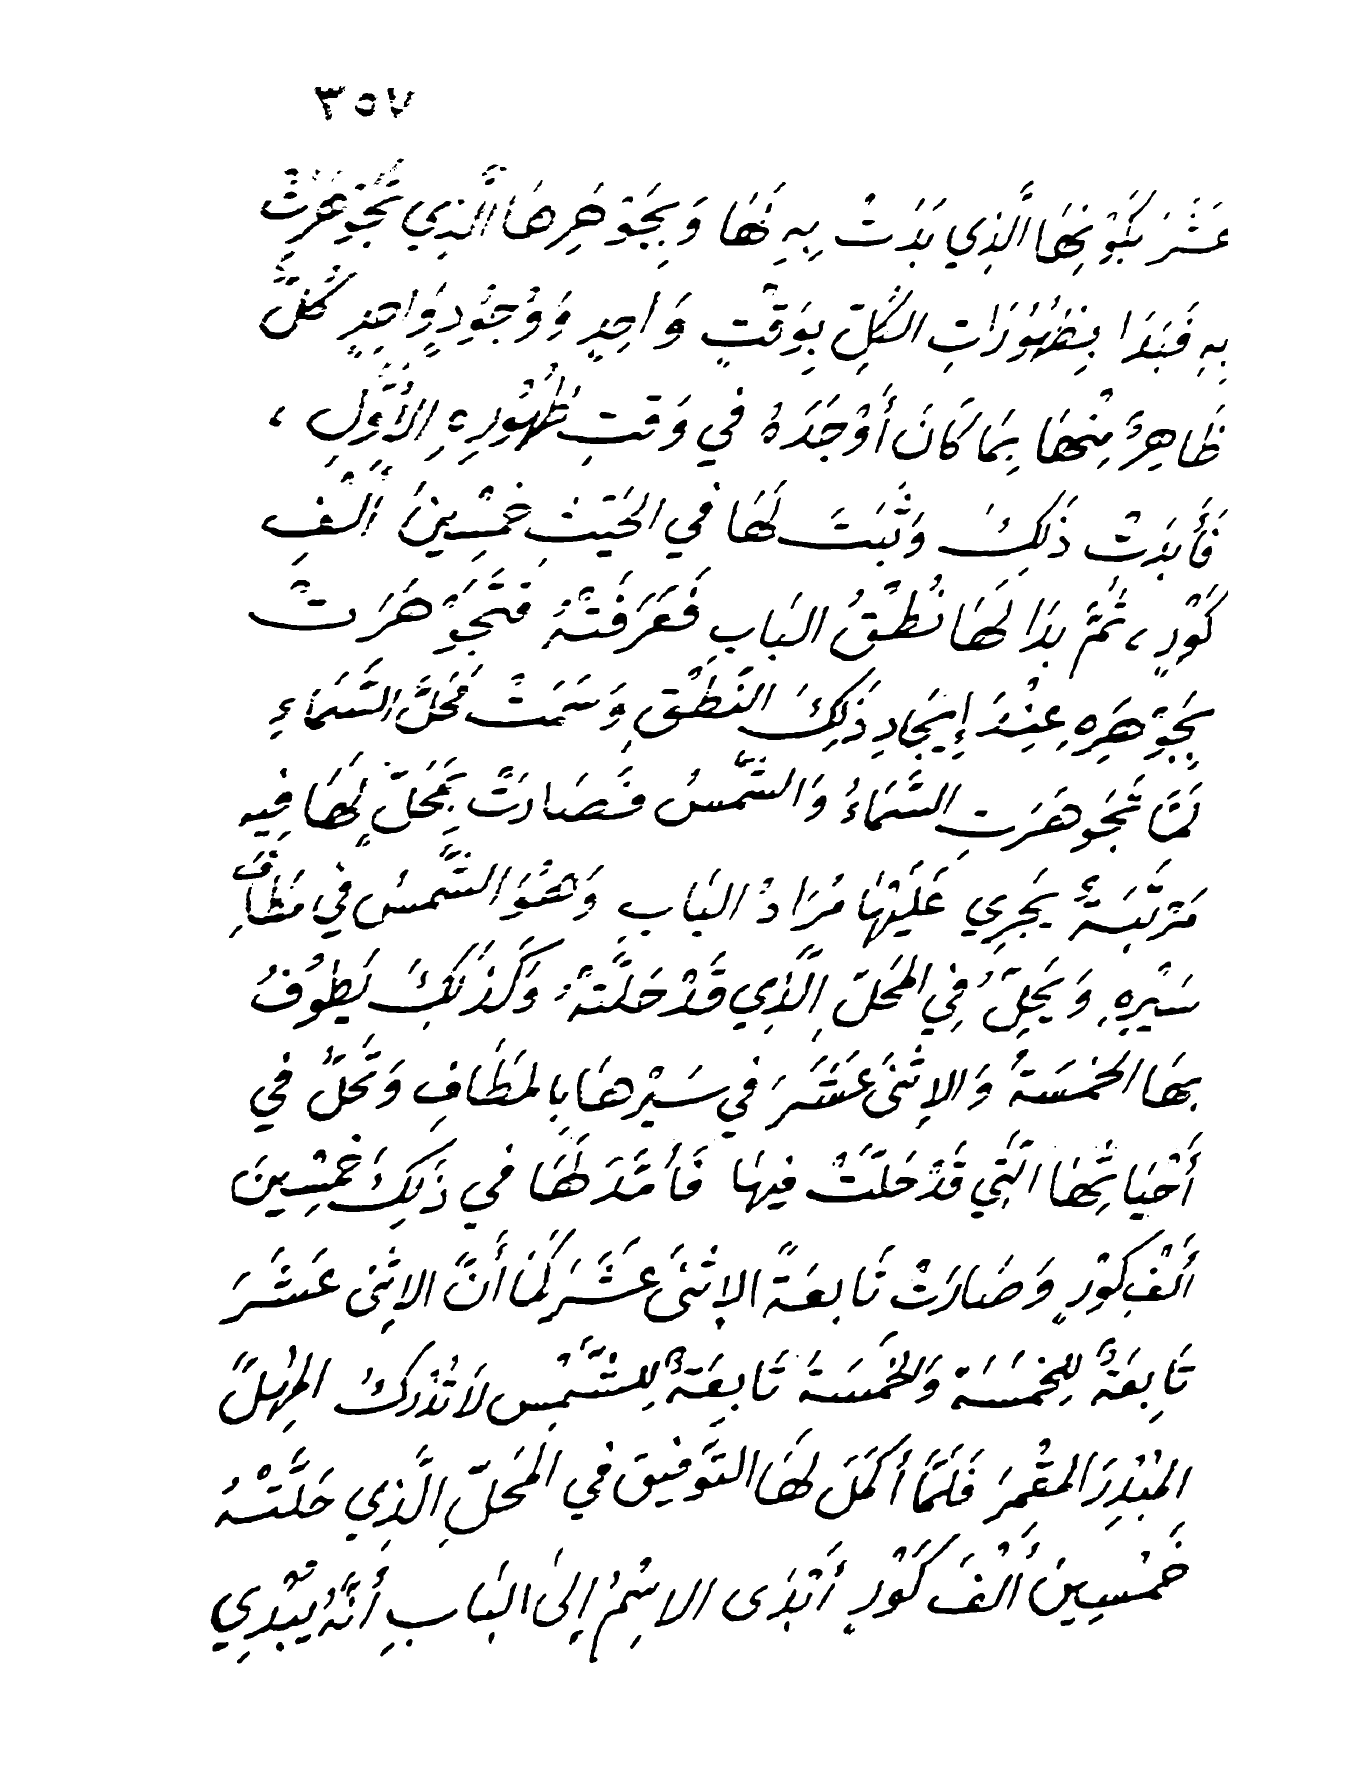 ٣٥٧
عَشَرَ بِكَوْنِهَا الَّذِي بَدَتْ بِهِ لَهَا وَبِجَوْهَرِهَا الَّذِي تَجَوْهَرَتْ
بِهِ فَبَدَا بِظُهُورَاتِ الكُلِّ بِوَقْتٍ وَاحِدٍ وَوُجُودٍ وَاحِدٍ كُلٌّ
ظَاهِرٌ مِنْهَا بِمَا كَانَ أَوْجَدَهُ فِي وَقْتِ ظُهُورِهِ الأَوَّلِ ،
فَأَبْدَتْ ذَلِكَ وَثَبَتَ لَهَا فِي الحَيِّزِ خَمْسِينَ أَلْفَ
كَوْرٍ ، ثُمَّ بَدَا لَهَا نُطْقُ البَابِ فَعَرَفَتْهُ فَتَجَوْهَرَتْ
بِجَوْهَرِهِ عِنْدَ إِيجَادِ ذَلِكَ النُّطْقِ وَسَمَتْ مَحَلَّ السَّمَاءِ
لَمَّا تَجَوهَرَتِ السَّمَاءُ وَالشَّمْسُ فَصَارَتْ بِمَحَلٍّ لَهَا فِيهِ
مَرْتَبَةٌ يَجْرِي عَلَيْهَا مُرَادُ البَابِ وَهُوَ الشَّمْسُ فِي مَطَافِ
سَيْرِهِ وَيَحِلُّ فِي المَحَلِّ الَّذِي قَدْ حَلَّتْهُ وَكَذَلِكَ يَطُوفُ
بِهَا الخَمْسَةُ وَالإِثْنَى عَشَرَ فِي سَيْرِهَا بِالمَطَافِ وَتَحِلُّ فِي
أَحْيَازِهَا الَّتِي قَدْ حَلَّتْ فِيهَا فَأَمَدَّ لَهَا فِي ذَلِكَ خَمْسِينَ
أَلْفَ كَوْرٍ وَصَارَتْ تَابِعَةً الإِثْنَى عَشَرَ كَمَا أَنَّ الإِثْنَى عَشَرَ
تَابِعَةٌ لِلخَمْسَةِ وَالخَمْسَةُ تَابِعَةٌ لِلشَّمْسِ لاَ تُدْرِكُ المُهِلَّ
المُبْدِرَ المُقْمِرَ فَلَمَّا أَكْمَلَ لَهَا التَّوفِيقَ فِي المَحَلِّ الَّذِي حَلَّتْهُ
خَمْسِينَ أَلْفَ كَوْرٍ أَبْدَى الاسْمُ إِلَى البَابِ أَنَّهُ يُبْدِي